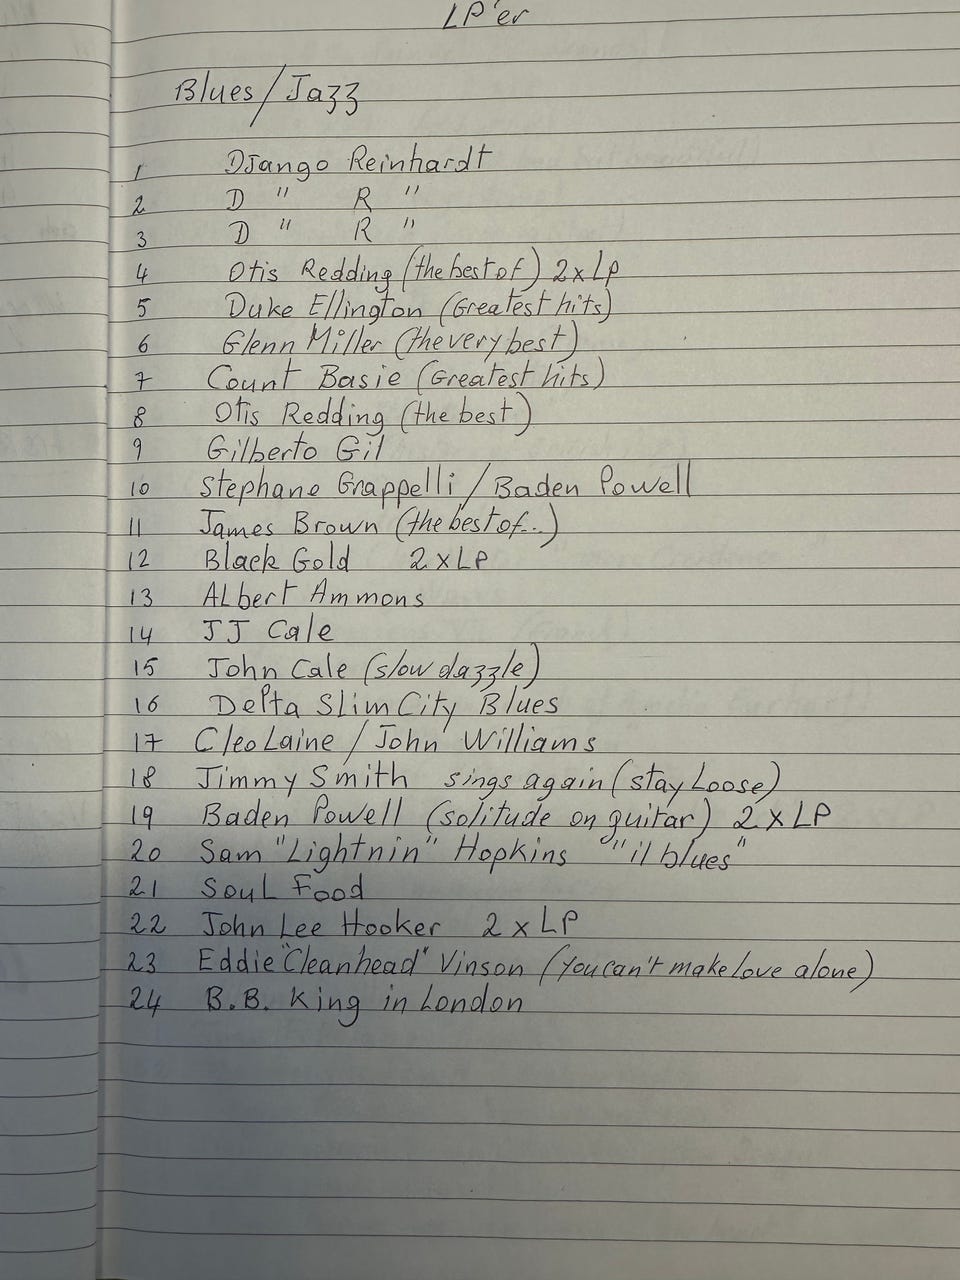 LP'er
Blues/Jazz
1 Django Reinhardt
2 D " R "
3 D " R "
4 Otis Redding (the best of) 2xLP
5 Duke Ellington (Greatest hits)
6 Glenn Miller (the very best)
7 Count Basie (Greatest hits)
8 Otis Redding (the best)
9 Gilberto Gil
10 Stephane Grappelli / Baden Powell
11 James Brown (the best of...)
12 Black Gold 2xLP
13 Albert Ammons
14 JJ Cale
15 John Cale (slow dazzle)
16 Delta Slim City Blues
17 Cleo Laine / John Williams
18 Jimmy Smith sings again (stay Loose)
19 Baden Powell (solitude on guitar) 2xLP
20 Sam "Lightnin" Hopkins "il blues"
21 Soul Food
22 John Lee Hooker 2xLP
23 Eddie "Cleanhead" Vinson (You can't make love alone)
24 B.B. King in London